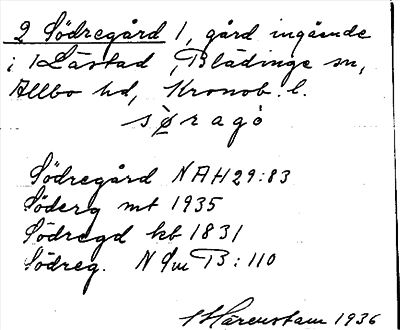 2 Södregård 1, gård ingående
i 1 Låstad, Blädinge sn,
Allbo hd, Kronob. l.
s ø r a g ò
Södregård NAH 29:83
Söderg mt 1935
Södregd kb 1831
Södreg. N Sm B: 110
Hårenstam 1936